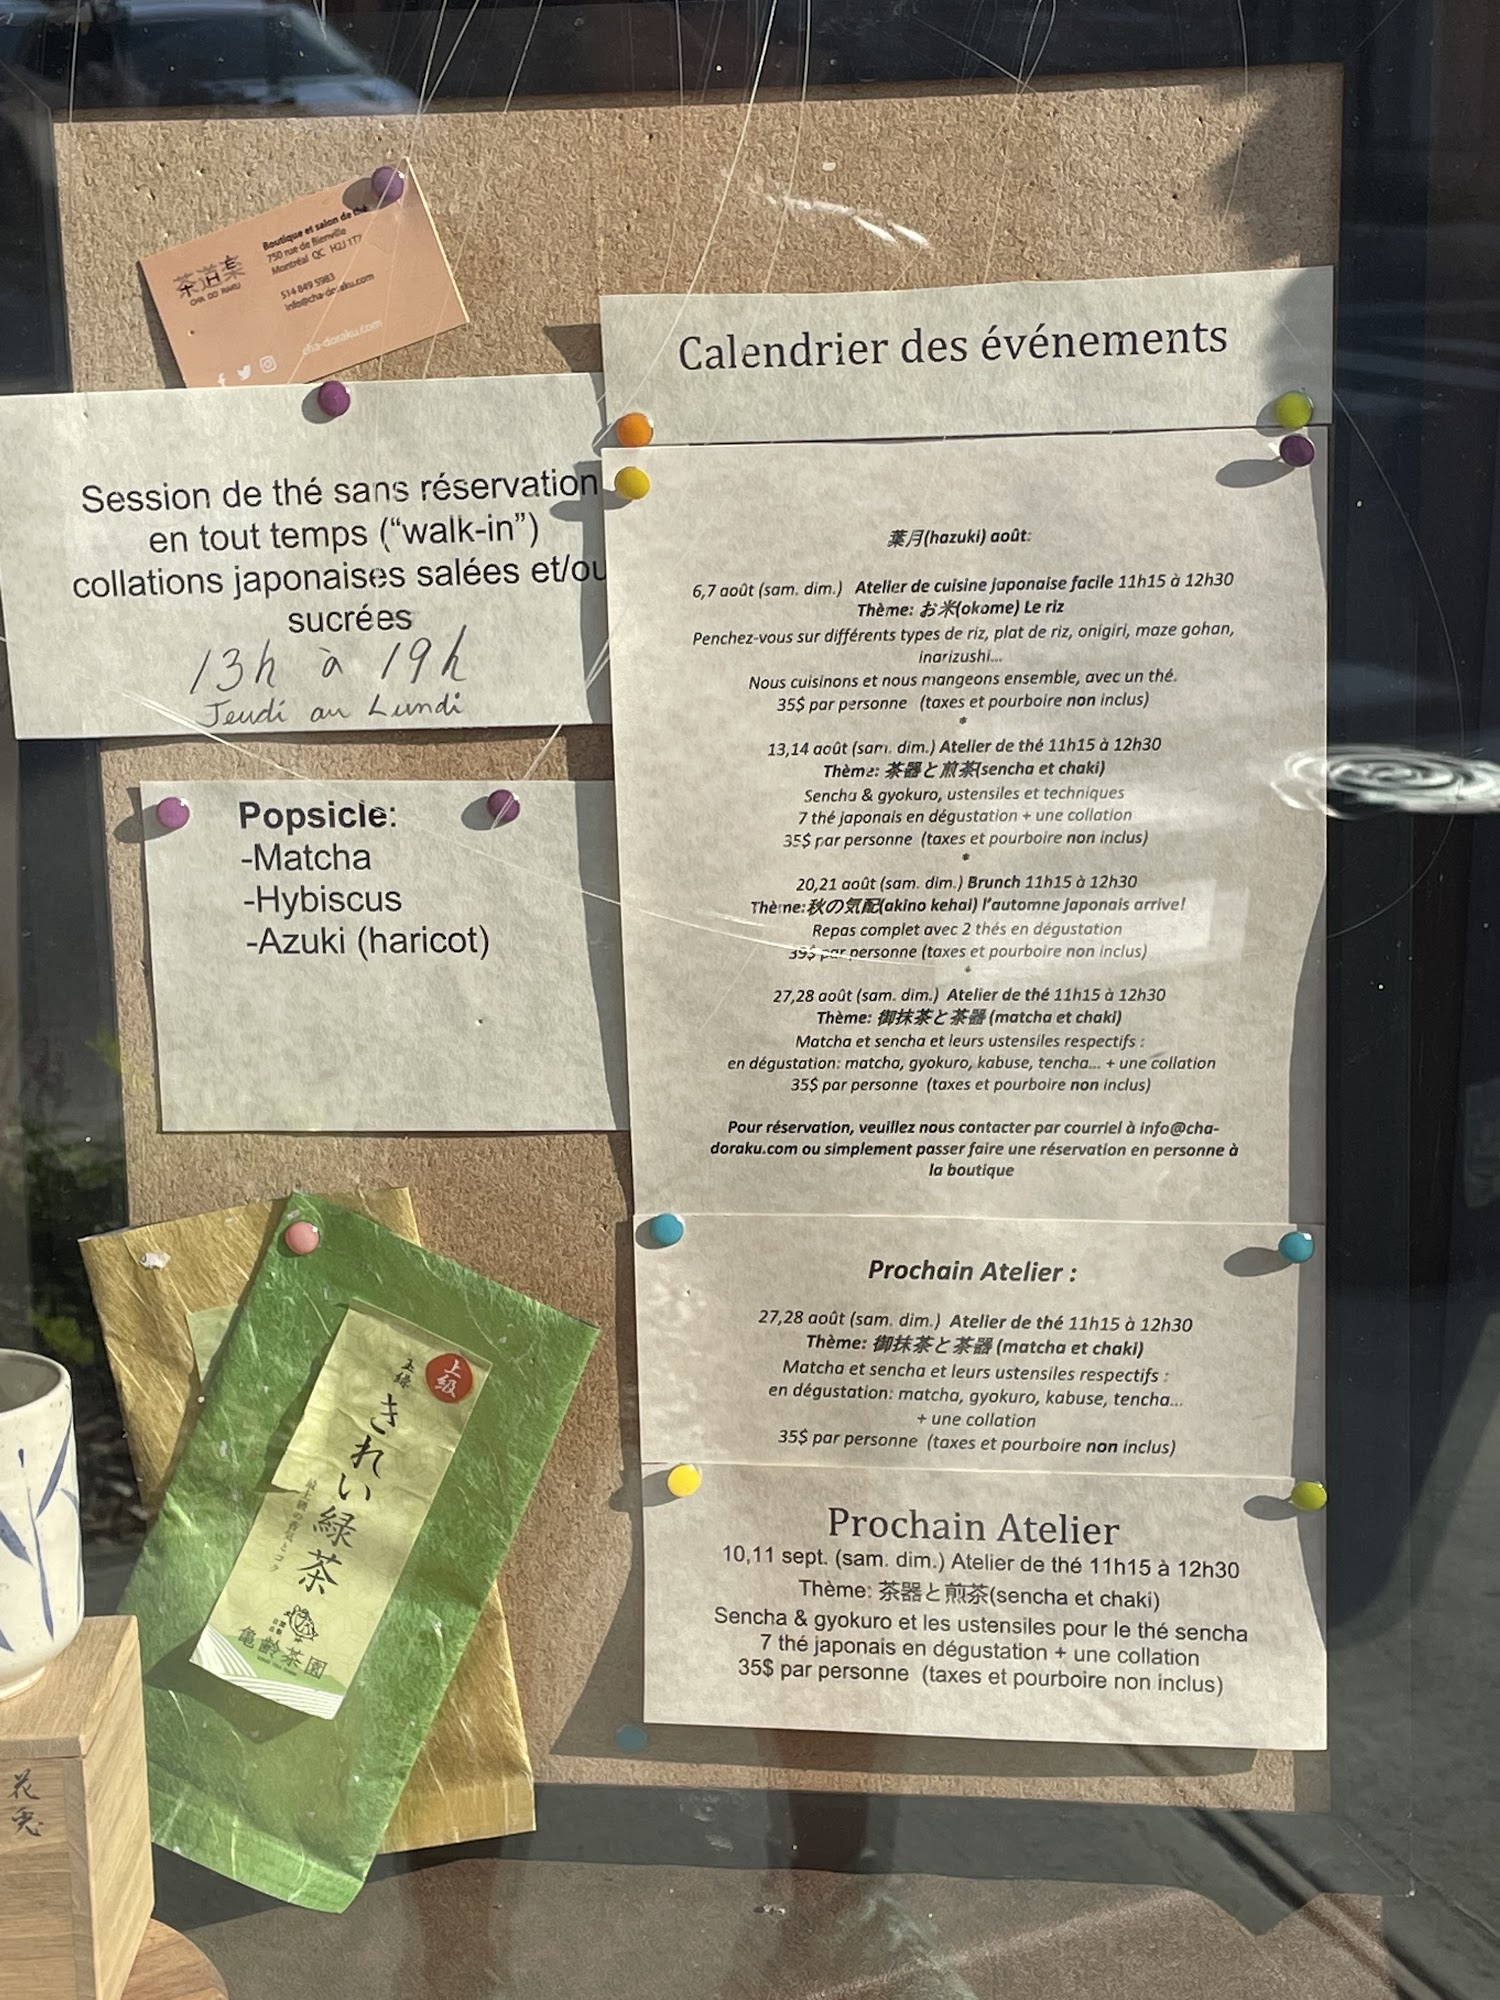 茶道楽
THÉ
CHA DO RAKU
Boutique et salon de thé
750 rue de Bienville
Montréal QC H2J 1T7
514 849 5983
info@cha-doraku.com
cha-doraku.com
Session de thé sans réservation
en tout temps (“walk-in”)
collations japonaises salées et/ou
sucrées
13h à 19h
Jeudi au Lundi
Popsicle:
-Matcha
-Hybiscus
-Azuki (haricot)
上級
玉緑
きれい緑茶
亀齢茶園
花兎
Calendrier des événements
葉月(hazuki) août:
6,7 août (sam. dim.) Atelier de cuisine japonaise facile 11h15 à 12h30
Thème: お米(okome) Le riz
Penchez-vous sur différents types de riz, plat de riz, onigiri, maze gohan,
inarizushi...
Nous cuisinons et nous mangeons ensemble, avec un thé.
35$ par personne (taxes et pourboire non inclus)
*
13,14 août (sam. dim.) Atelier de thé 11h15 à 12h30
Thème: 茶器と煎茶(sencha et chaki)
Sencha & gyokuro, ustensiles et techniques
7 thé japonais en dégustation + une collation
35$ par personne (taxes et pourboire non inclus)
*
20,21 août (sam. dim.) Brunch 11h15 à 12h30
Thème:秋の気配(akino kehai) l’automne japonais arrive!
Repas complet avec 2 thés en dégustation
39$ par personne (taxes et pourboire non inclus)
*
27,28 août (sam. dim.) Atelier de thé 11h15 à 12h30
Thème: 御抹茶と茶器 (matcha et chaki)
Matcha et sencha et leurs ustensiles respectifs :
en dégustation: matcha, gyokuro, kabuse, tencha... + une collation
35$ par personne (taxes et pourboire non inclus)
Pour réservation, veuillez nous contacter par courriel à info@cha-
doraku.com ou simplement passer faire une réservation en personne à
la boutique
Prochain Atelier :
27,28 août (sam. dim.) Atelier de thé 11h15 à 12h30
Thème: 御抹茶と茶器 (matcha et chaki)
Matcha et sencha et leurs ustensiles respectifs :
en dégustation: matcha, gyokuro, kabuse, tencha...
+ une collation
35$ par personne (taxes et pourboire non inclus)
Prochain Atelier
10,11 sept. (sam. dim.) Atelier de thé 11h15 à 12h30
Thème: 茶器と煎茶(sencha et chaki)
Sencha & gyokuro et les ustensiles pour le thé sencha
7 thé japonais en dégustation + une collation
35$ par personne (taxes et pourboire non inclus)